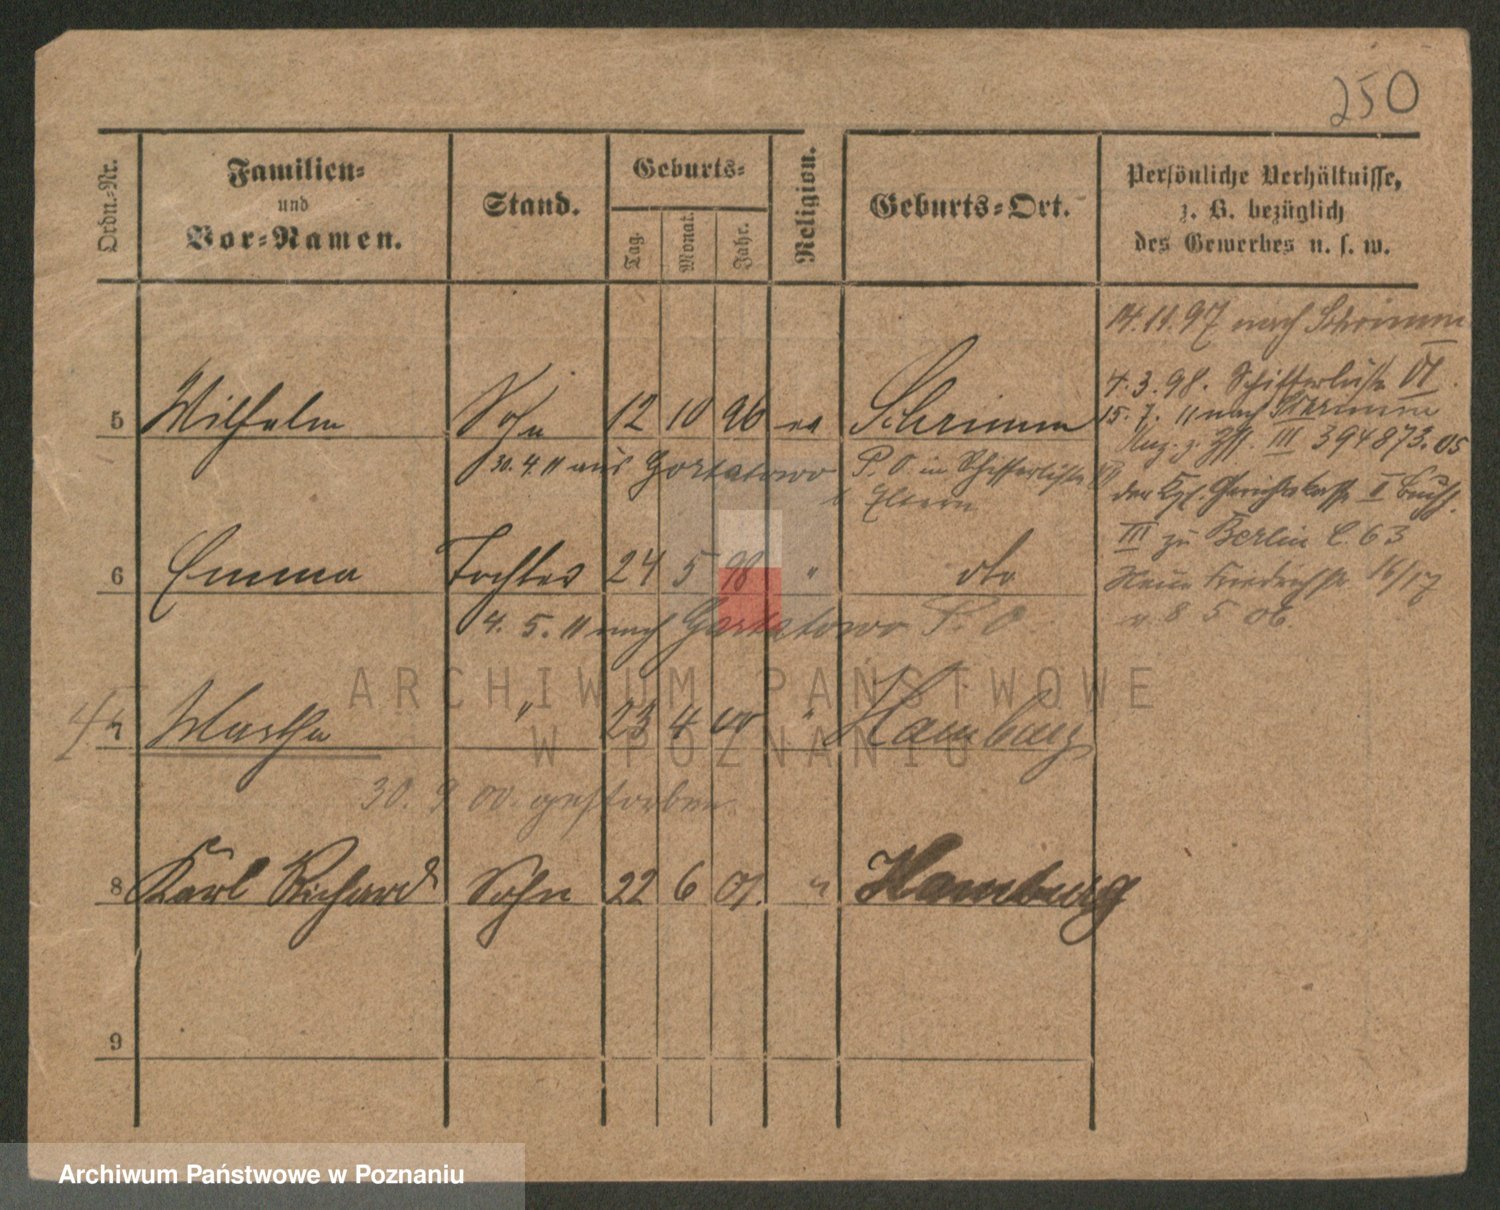 250
Ordn.-Nr.
Familien-
und
Vor-Namen.
Stand.
Geburts-
Tag.
Monat.
Jahr.
Religion.
Geburts-Ort.
Persönliche Verhältnisse,
z. B. bezüglich
des Gewerbes u. s. w.
14.11.97 nach Schrimm
4.3.98. Schifferliste VI.
5 Wilhelm Sohn 12 10 96 Schrimm
15. 7. 11 nach Schrimm
III 394873.05
30. 4. 11 aus Gortatowo P. O. in Schifferliste VI
b Eltern
der Kgl. Gerichtskasse II
III zu Berlin C. 63
6 Emma Tochter 24 5 98 " dto
Neue Friedrichstr. 16/17
v. 8 5 06.
4. 5. 11 nach Gortatowo P. O
ARCHIWUM PAŃSTWOWE
W POZNANIU
7 Martha " 23 4 00 " Hamburg
30. 9 00. gestorben.
8 Karl Richard Sohn 22 6 01. " Hamburg
9
Archiwum Państwowe w Poznaniu